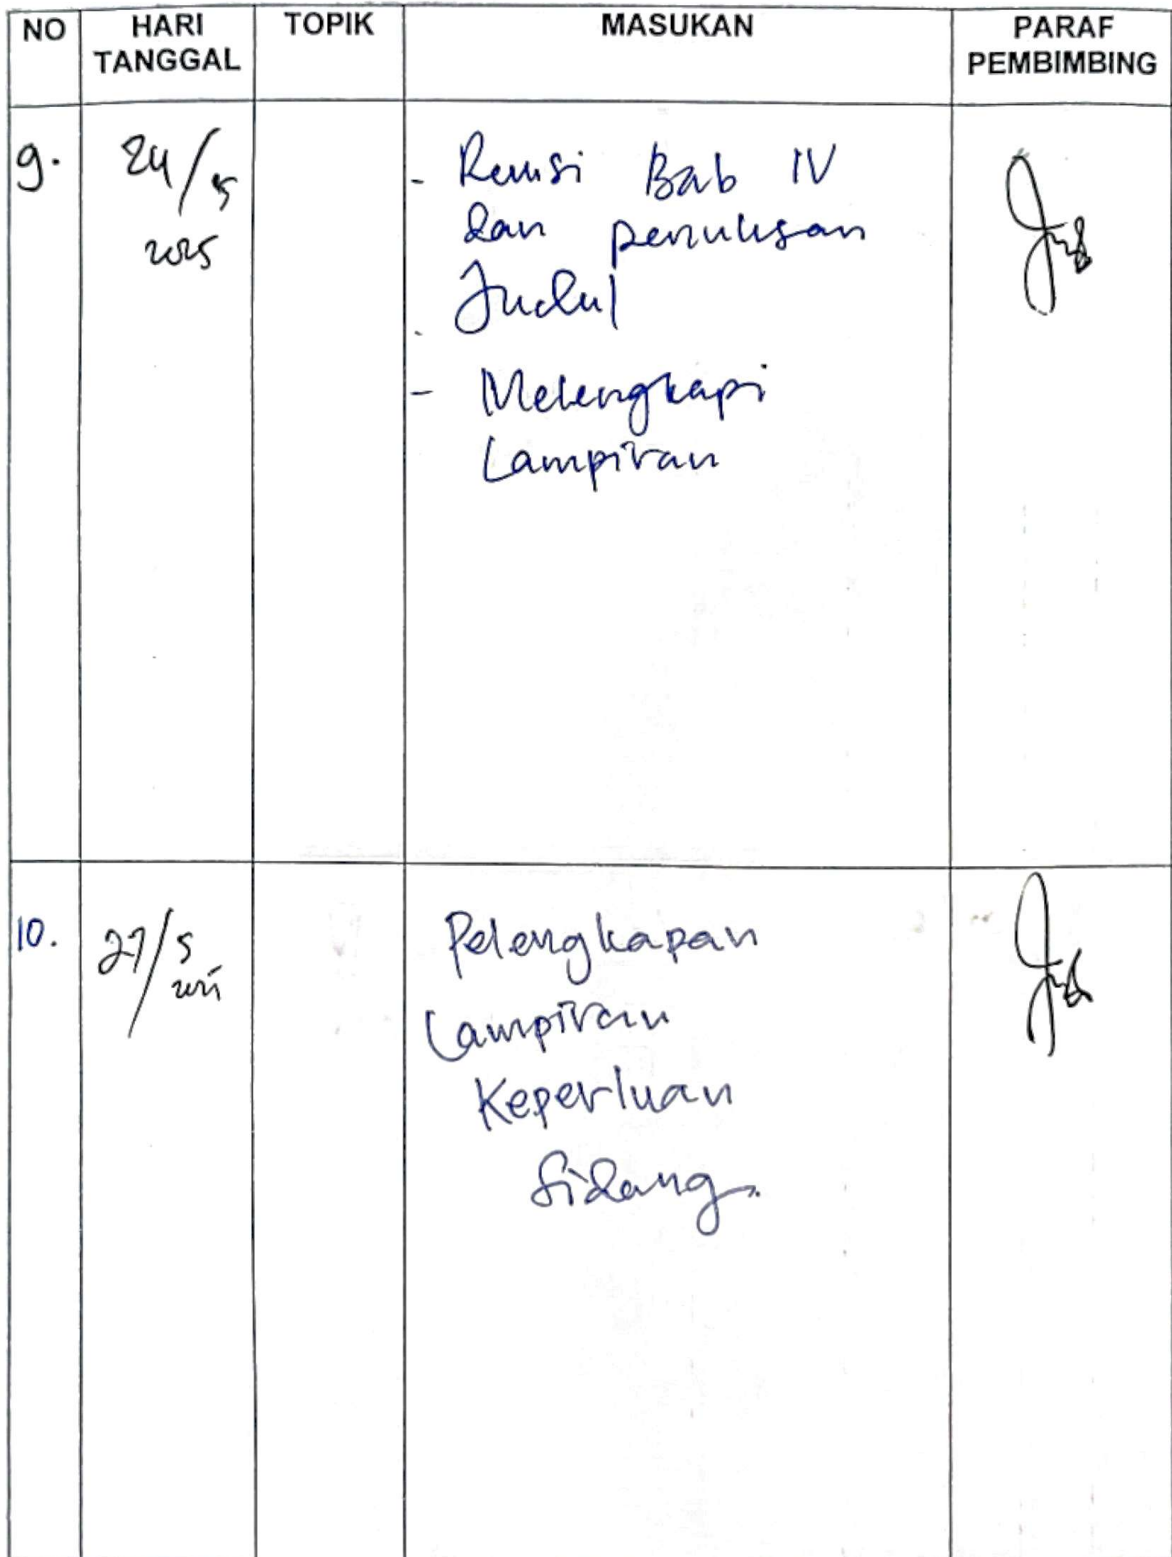 NO HARI TANGGAL TOPIK MASUKAN PARAF PEMBIMBING
9. 24/5 2025
- Revisi Bab IV
dan penulisan
Judul
- Melengkapi
Lampiran
10. 27/5 2025
Pelengkapan
Lampiran
Keperluan
Sidang.